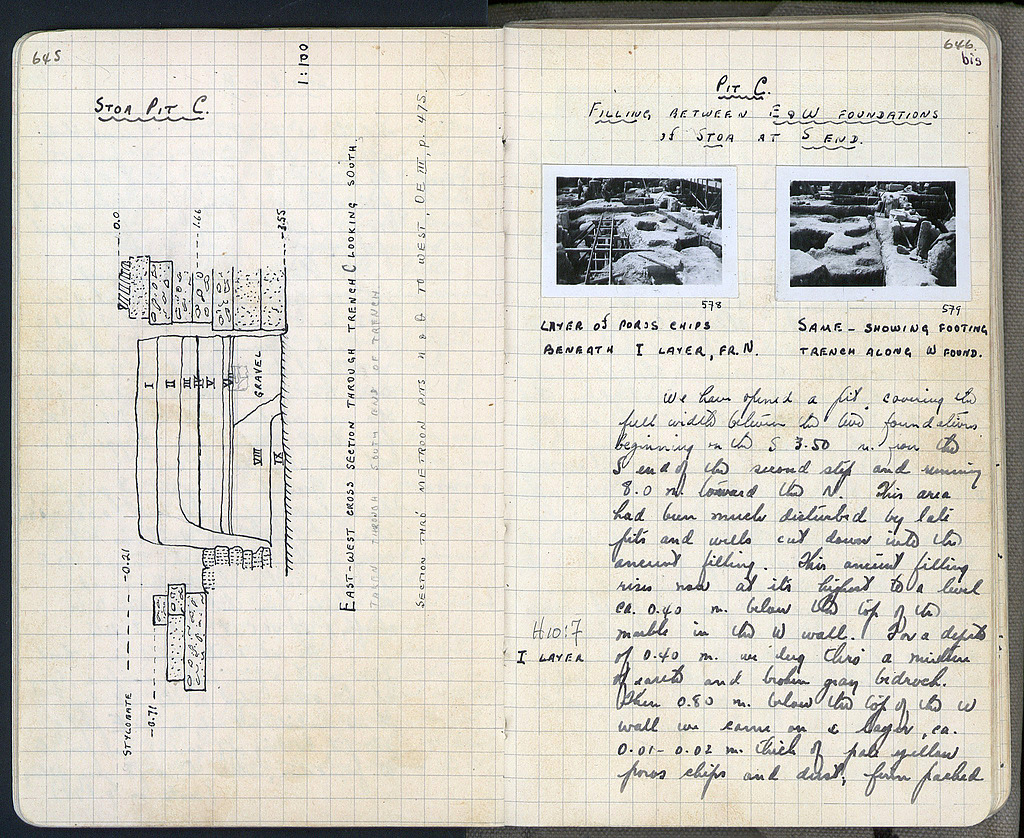 645
1:100
STOA PIT C.
0.0
1.66
3.55
I
II
III
IV
V
VI
GRAVEL
VIII
IX
-0.21
STYLOBATE
-0.71
EAST-WEST CROSS SECTION THROUGH TRENCH C LOOKING SOUTH.
TAKEN THROUGH SOUTH END OF TRENCH
SECTION THRO' METROON PITS TO WEST, OE III, p. 475.
646
bis
PIT C.
FILLING BETWEEN E & W FOUNDATIONS
of STOA AT S END.
578
579
LAYER of POROS CHIPS
BENEATH I LAYER, FR. N.
SAME - SHOWING FOOTING
TRENCH ALONG W FOUND.
We have opened a pit, covering the
full width between the two foundations
beginning on the S 3.50 m. from the
S end of the second step and running
8.0 m. toward the N. This area
had been much disturbed by late
pits and wells cut down into the
ancient filling. This ancient filling
rises now at its highest to a level
ca. 0.40 m. below the top of the
marble in the W wall. For a depth
H10:7
I LAYER
of 0.40 m. we dug thro' a mixture
of earth and broken gray bedrock.
Then 0.80 m. below the top of the W
wall we came on a layer, ca.
0.01-0.02 m. thick of pale yellow
poros chips and dust, firm packed